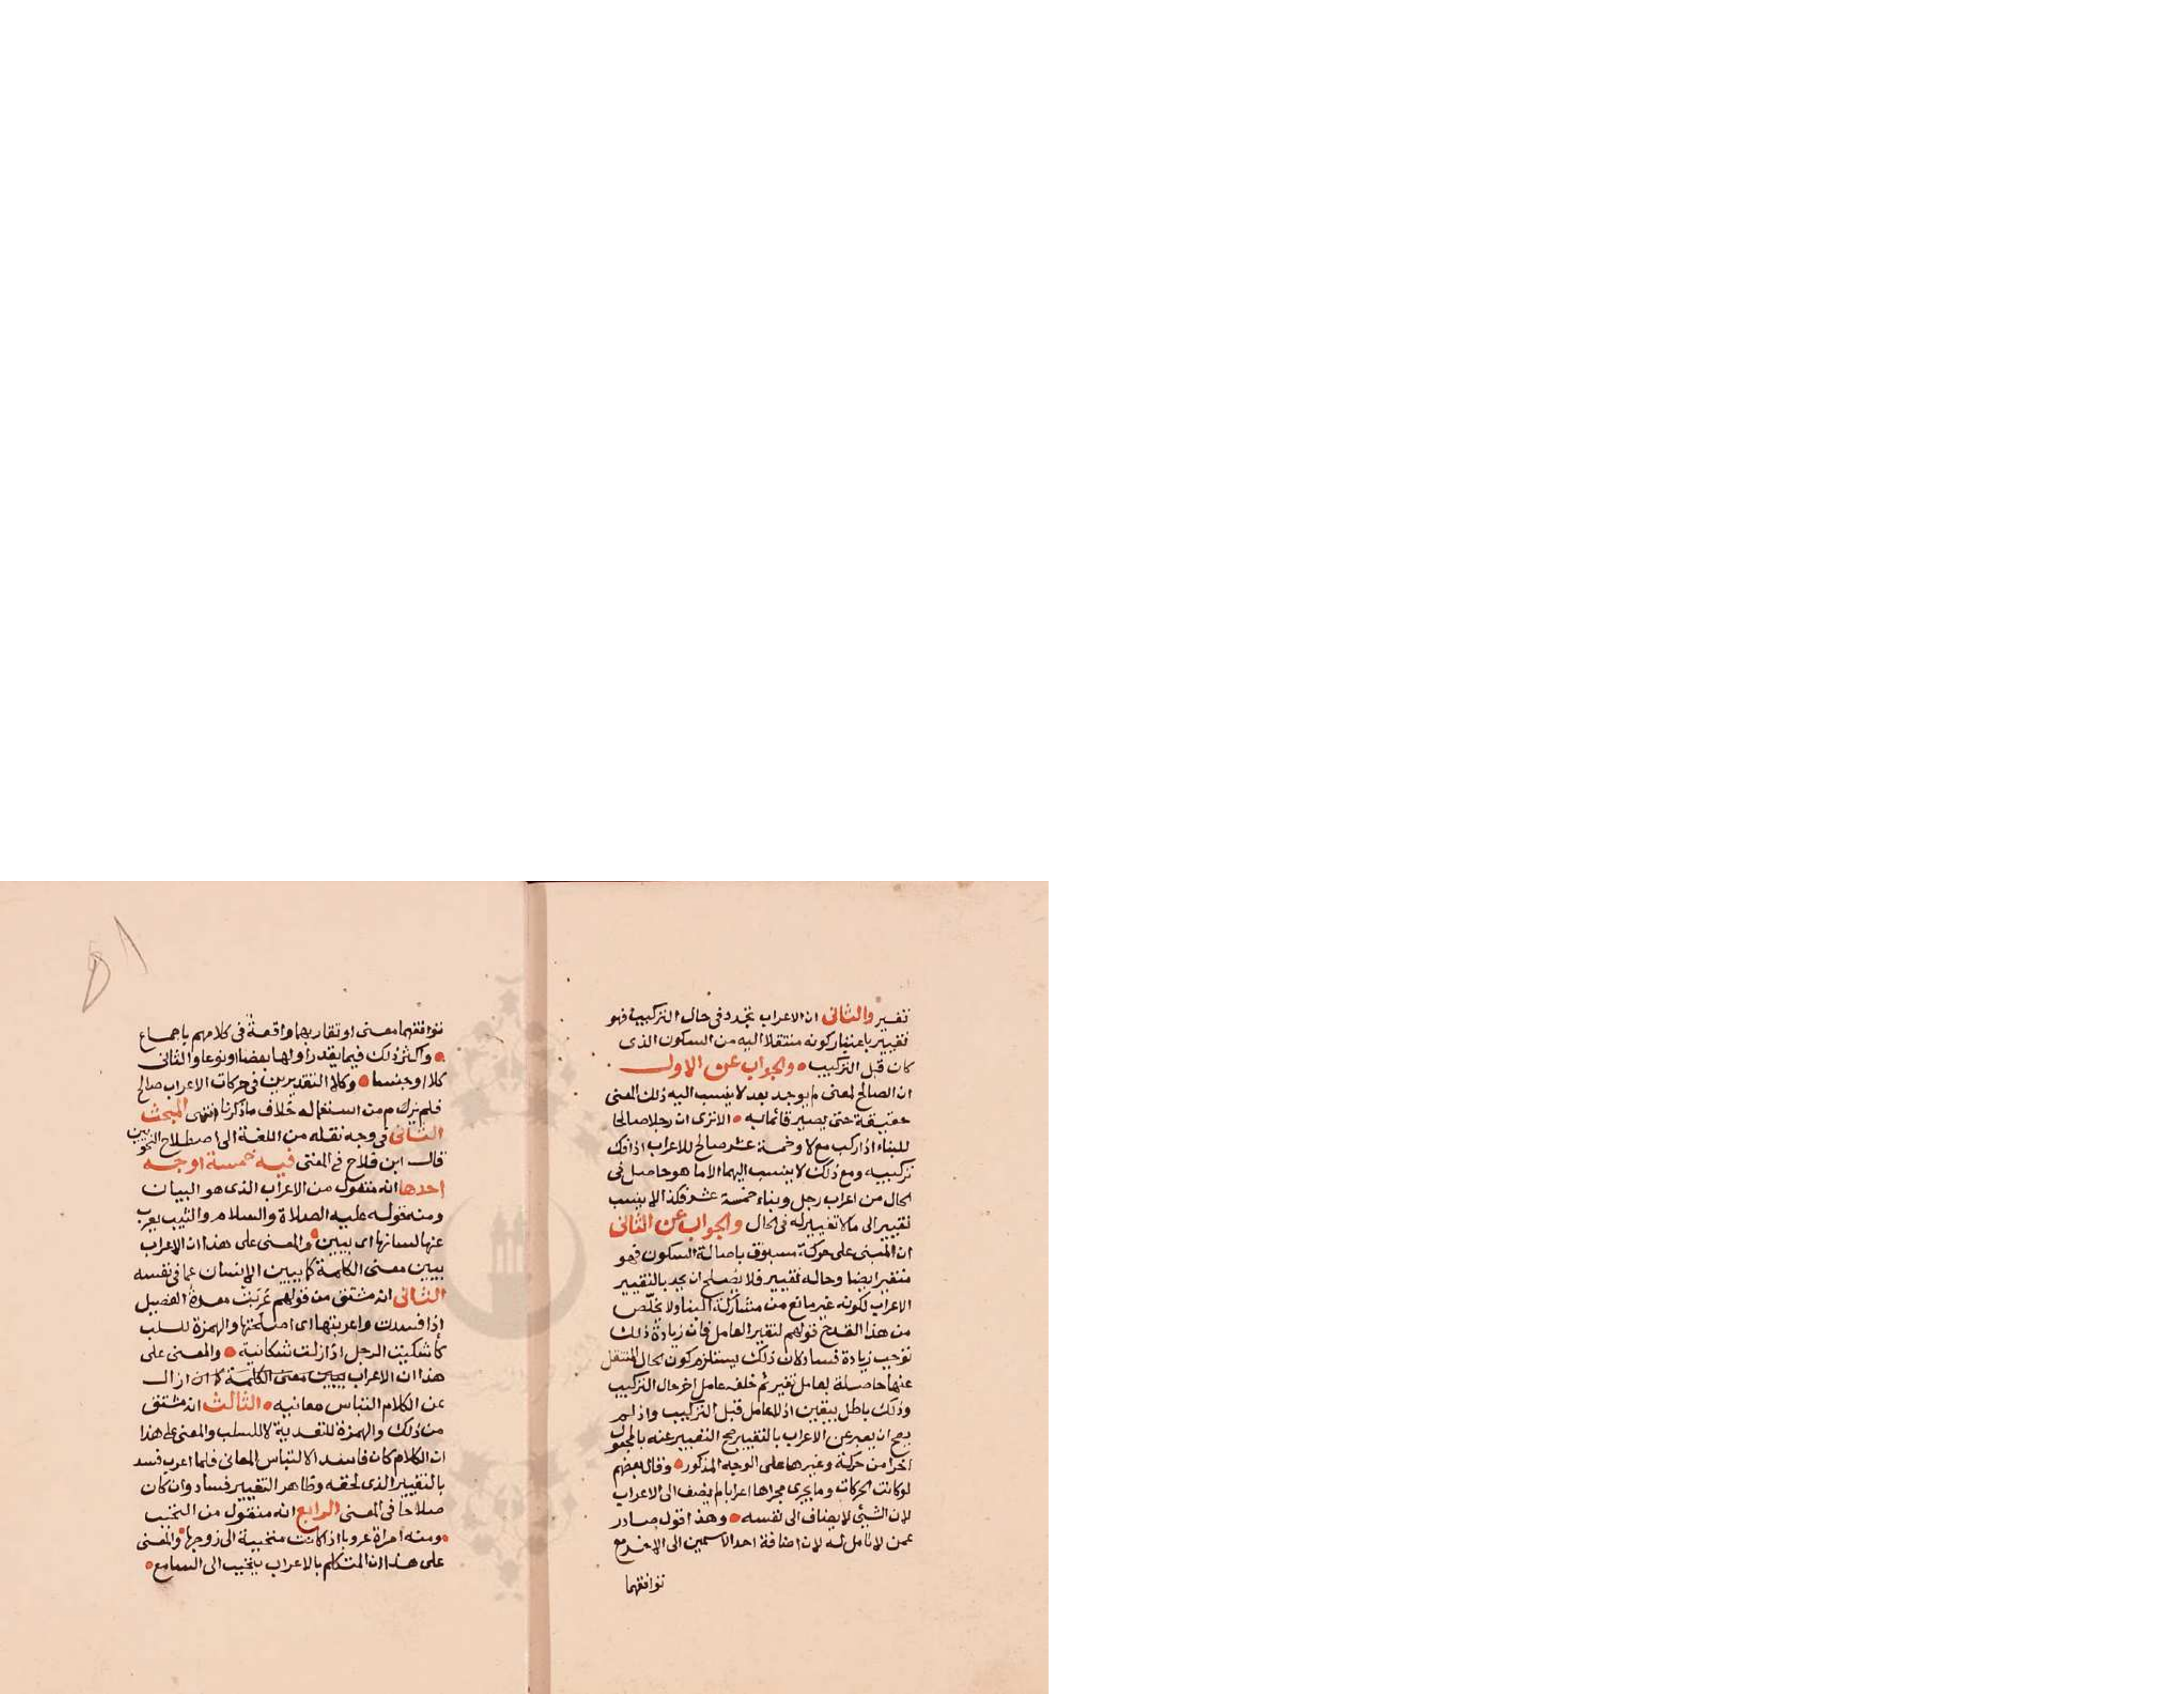 تغيير والثانى ان الاعراب تجدد فى حال التركيب فهو
تغيير باعتبار كونه منتقلا اليه من السكون الذى
كان قبل التركيب والجواب عن الاول
ان الصالح لمعنى لم يوجد بعد لا ينسب اليه ذلك المعنى
حقيقة حتى يصير قائما به الا ترى ان رجلا صالحا
للبناء اذا ركب مع لا وخمسة عشر صالح للاعراب اذا فك
تركيبه ومع ذلك لا ينسب اليهما الا ما هو حاصل فى
الحال من اعراب رجل وبناء خمسة عشر فكذا لا ينسب
تغيير الى ما لا تغيير له فى الحال والجواب عن الثانى
ان المبنى على حركة مسبوق باصالة السكون فهو
متغير ايضا وحاله تغيير فلا يصلح ان يحد بالتغيير
الاعراب لكونه غير مانع من مشاركة البنا ولا يخلص
من هذا القدح قولهم لتغير العامل فان زيادة ذلك
توجب زيادة فساد لان ذلك يستلزم كون الحال المنتقل
عنها حاصلة لعامل تغير ثم خلفه عامل اخر حال التركيب
وذلك باطل بيقين اذ لا عامل قبل التركيب واذ لم
يصح ان يعبر عن الاعراب بالتغيير صح التعبير عنه بالمجعول
اخرا من حركة وغيرها على الوجه المذكور وقال بعضهم
لو كانت الحركات وما يجرى مجراها اعرابا لم يضف الى الاعراب
لان الشئ لا يضاف الى نفسه وهذا قول صادر
عمن لا تامل له لان اضافة احد الاسمين الى الاخر مع
توافقهما
توافقهما معنى او تقاربهما واقعة فى كلامهم باجماع
واكثر ذلك فيما يقدر اولهما بعضا او نوعا والثانى
كلا او جنسا وكلا التقديرين فى حركات الاعراب صالح
فلم يلزم من استعماله خلاف ما ذكرنا انتهى المبحث
الثانى فى وجه نقله من اللغة الى اصطلاح النحويين
قال ابن فلاح فى المغنى فيه خمسة اوجه
احدها انه منقول من الاعراب الذى هو البيان
ومنه قوله عليه الصلاة والسلام والثيب يعرب
عنها لسانها اى يبين والمعنى على هذا ان الاعراب
يبين معنى الكلمة كما يبين الانسان عما فى نفسه
الثانى انه مشتق من قولهم عربت معدة الفصيل
اذا فسدت واعربتها اى اصلحتها والهمزة للسلب
كاشكيت الرجل اذا ازلت شكايته والمعنى على
هذا ان الاعراب يبين معنى الكلمة كما ان ازال
عن الكلام التباس معانيه الثالث انه مشتق
من ذلك والهمزة للتعدية لا للسلب والمعنى على هذا
ان الكلام كان فاسدا لالتباس المعانى فلما اعرب فسد
بالتغيير الذى لحقه وظاهر التغيير فساد وان كان
صلاحا فى المعنى الرابع انه منقول من التحبب
ومنه امراة عروبا اذا كانت متحببة الى زوجها والمعنى
على هذا ان المتكلم بالاعراب يتحبب الى السامع